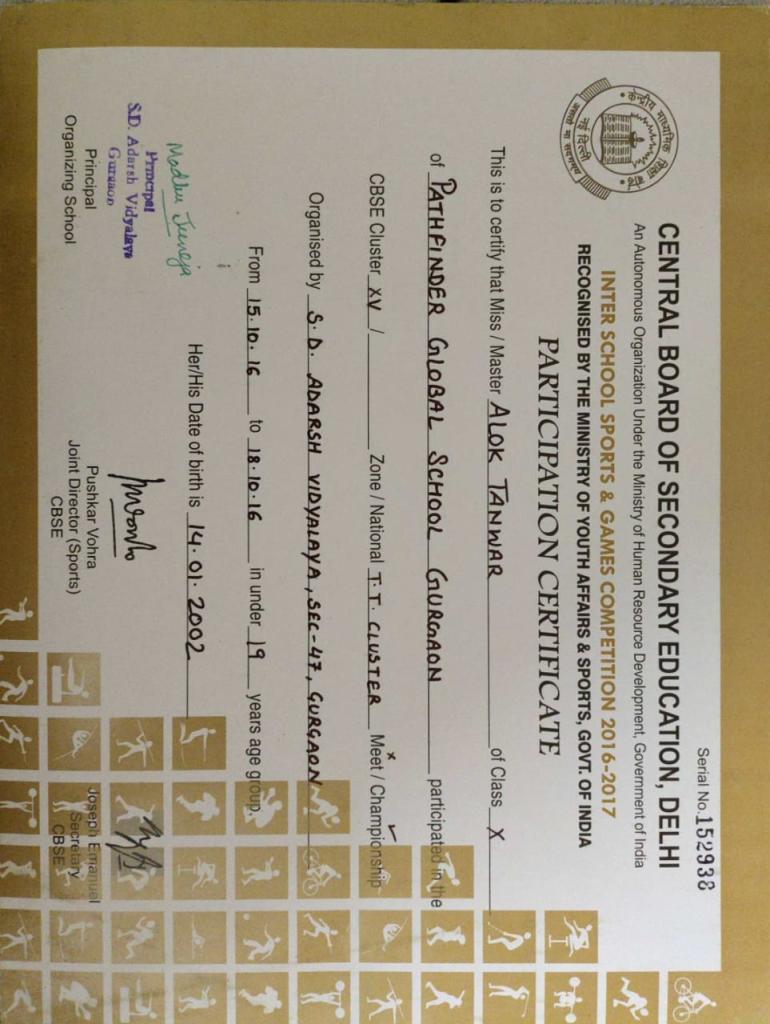 Serial No. 152938
केन्द्रीय माध्यमिक शिक्षा बोर्ड
नई दिल्ली
असतो मा सद्गमय
CENTRAL BOARD OF SECONDARY EDUCATION, DELHI
An Autonomous Organization Under the Ministry of Human Resource Development, Government of India
INTER SCHOOL SPORTS & GAMES COMPETITION 2016-2017
RECOGNISED BY THE MINISTRY OF YOUTH AFFAIRS & SPORTS, GOVT. OF INDIA
PARTICIPATION CERTIFICATE
This is to certify that Miss / Master ALOK TANWAR of Class X
of PATHFINDER GLOBAL SCHOOL GURGAON participated in the
CBSE Cluster XV / Zone / National T.T. CLUSTER Meet / Championship
Organised by S.D. ADARSH VIDYALAYA, SEC-47, GURGAON
From 15.10.16 to 18.10.16 in under 19 years age group.
Her/His Date of birth is 14.01.2002
Madhu Juneja
Principal
S.D. Adarsh Vidyalaya
Gurgaon
Principal
Organizing School
Pushkar Vohra
Joint Director (Sports)
CBSE
Joseph Emanuel
Secretary
CBSE